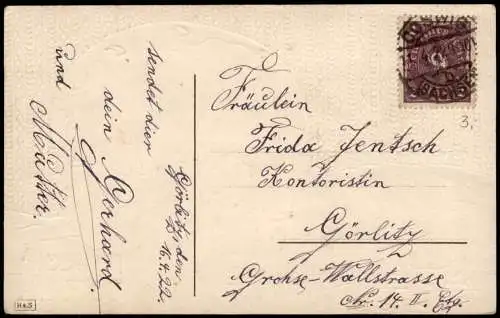 sendet dier
dein Gerhard
und
Mutter.
Görlitz, den
16.4.22.
Fräulein
Frida Jentsch
Kontoristin
Görlitz
Grohse-Wallstrasse
Nr. 14. II. Etg.
COSWIG
(SACHS)
3.
H&S